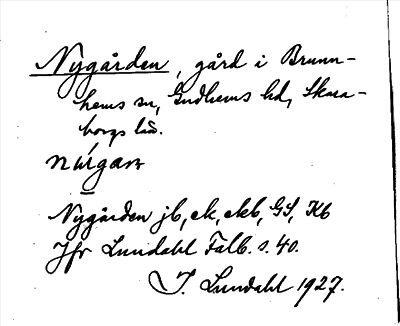 Nygården, gård i Brunn-
hems sn, Gudhems hd, Skara-
borgs län.
Nygården jb, ek, ekb, GS, Kb
Jfr Lundahl Falb. s. 40.
I. Lundahl 1927.